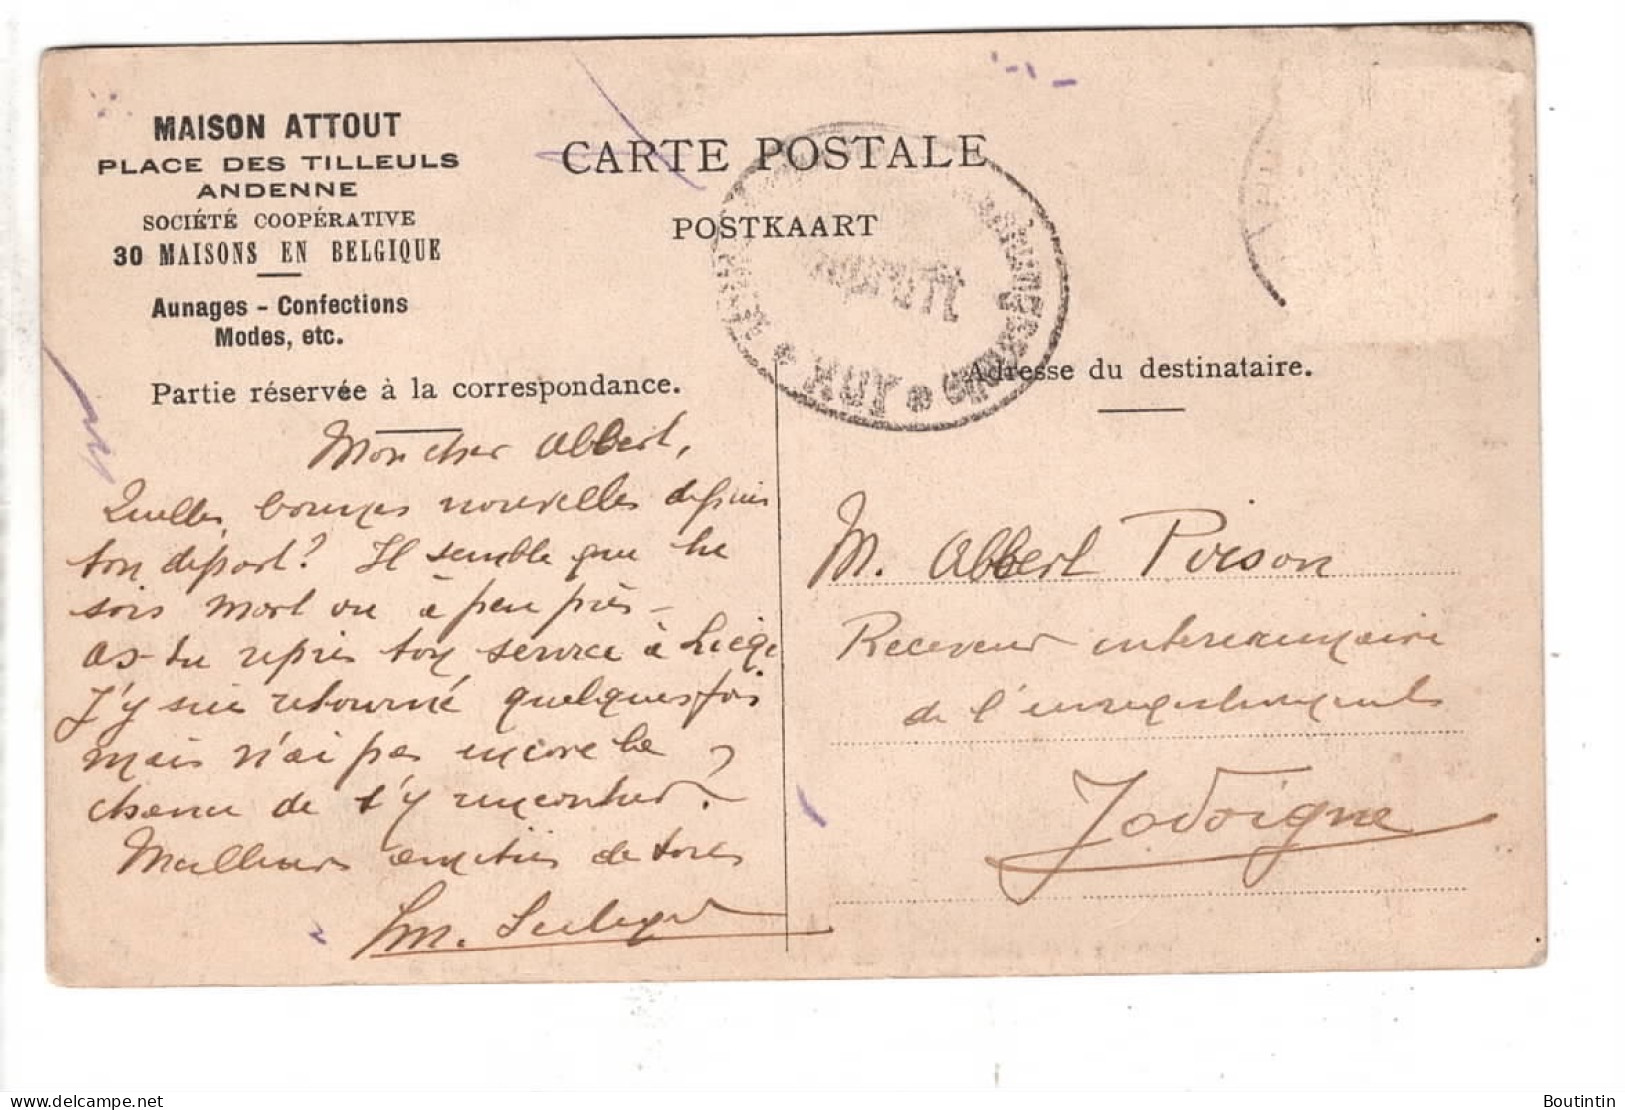 MAISON ATTOUT
PLACE DES TILLEULS
ANDENNE
SOCIÉTÉ COOPÉRATIVE
30 MAISONS EN BELGIQUE
Aunages - Confections
Modes, etc.
CARTE POSTALE
POSTKAART
Geprüft
HUY
Partie réservée à la correspondance.
Adresse du destinataire.
Mon cher Albert,
Quelles bonnes nouvelles depuis
ton départ? Il semble que tu
sois mort ou à peu près -
as-tu repris ton service à Liège
J'y suis retourné quelquesfois
mais n'ai pas encore la
chance de t'y rencontrer?
Meilleures amitiés de tous
M. Albert Poison
Receveur interimaire
de l'enregistrement
Jodoigne
Boutintin